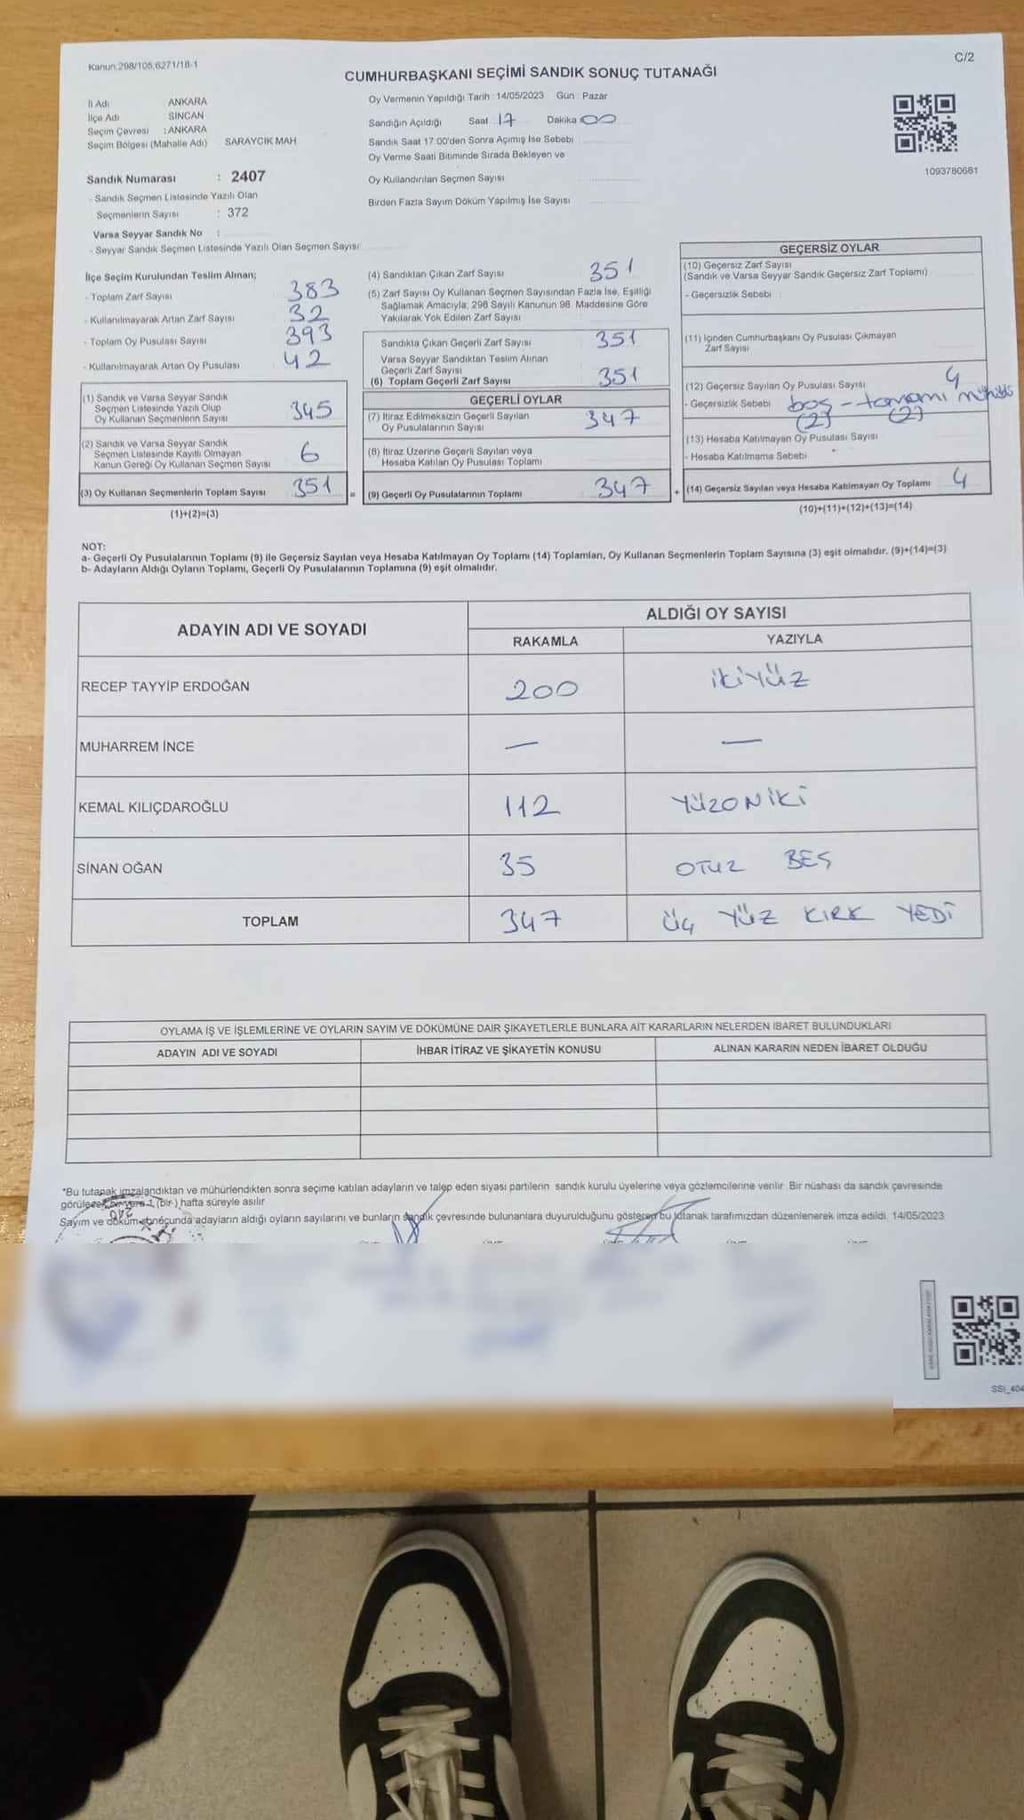 Kanun:298/105,6271/18-1
C/2
CUMHURBAŞKANI SEÇİMİ SANDIK SONUÇ TUTANAĞI
İl Adı ANKARA
İlçe Adı SİNCAN
Seçim Çevresi : ANKARA
Seçim Bölgesi (Mahalle Adı) SARAYCIK MAH
Sandık Numarası : 2407
- Sandık Seçmen Listesinde Yazılı Olan
Seçmenlerin Sayısı : 372
Varsa Seyyar Sandık No :
- Seyyar Sandık Seçmen Listesinde Yazılı Olan Seçmen Sayısı
Oy Vermenin Yapıldığı Tarih : 14/05/2023 Gün : Pazar
Sandığın Açıldığı Saat 17 Dakika 00
Sandık Saat 17:00'den Sonra Açımış İse Sebebi
Oy Verme Saati Bitiminde Sırada Bekleyen ve
Oy Kullandırılan Seçmen Sayısı
Birden Fazla Sayım Döküm Yapılmış İse Sayısı
1093780681
İlçe Seçim Kurulundan Teslim Alınan;
- Toplam Zarf Sayısı 383
- Kullanılmayarak Artan Zarf Sayısı 32
- Toplam Oy Pusulası Sayısı 393
- Kullanılmayarak Artan Oy Pusulası 42
(1) Sandık ve Varsa Seyyar Sandık
Seçmen Listesinde Yazılı Olup
Oy Kullanan Seçmenlerin Sayısı 345
(2) Sandık ve Varsa Seyyar Sandık
Seçmen Listesinde Kayıtlı Olmayan
Kanun Gereği Oy Kullanan Seçmen Sayısı 6
(3) Oy Kullanan Seçmenlerin Toplam Sayısı 351 =
(1)+(2)=(3)
(4) Sandıktan Çıkan Zarf Sayısı 351
(5) Zarf Sayısı Oy Kullanan Seçmen Sayısından Fazla İse, Eşitliği
Sağlamak Amacıyla, 298 Sayılı Kanunun 98. Maddesine Göre
Yakılarak Yok Edilen Zarf Sayısı
Sandıkta Çıkan Geçerli Zarf Sayısı 351
Varsa Seyyar Sandıktan Teslim Alınan
Geçerli Zarf Sayısı
(6) Toplam Geçerli Zarf Sayısı 351
GEÇERLİ OYLAR
(7) İtiraz Edilmeksizin Geçerli Sayılan
Oy Pusulalarının Sayısı 347
(8) İtiraz Üzerine Geçerli Sayılan veya
Hesaba Katılan Oy Pusulası Toplamı
(9) Geçerli Oy Pusulalarının Toplamı 347 +
GEÇERSİZ OYLAR
(10) Geçersiz Zarf Sayısı
(Sandık ve Varsa Seyyar Sandık Geçersiz Zarf Toplamı)
- Geçersizlik Sebebi
(11) İçinden Cumhurbaşkanı Oy Pusulası Çıkmayan
Zarf Sayısı
(12) Geçersiz Sayılan Oy Pusulası Sayısı 4
- Geçersizlik Sebebi boş - tamamı mühürlü
(2) (2)
(13) Hesaba Katılmayan Oy Pusulası Sayısı
- Hesaba Katılmama Sebebi
(14) Geçersiz Sayılan veya Hesaba Katılmayan Oy Toplamı 4
(10)+(11)+(12)+(13)=(14)
NOT:
a- Geçerli Oy Pusulalarının Toplamı (9) ile Geçersiz Sayılan veya Hesaba Katılmayan Oy Toplamı (14) Toplamları, Oy Kullanan Seçmenlerin Toplam Sayısına (3) eşit olmalıdır. (9)+(14)=(3)
b- Adayların Aldığı Oyların Toplamı, Geçerli Oy Pusulalarının Toplamına (9) eşit olmalıdır.
ADAYIN ADI VE SOYADI
ALDIĞI OY SAYISI
RAKAMLA YAZIYLA
RECEP TAYYİP ERDOĞAN 200 İKİYÜZ
MUHARREM İNCE — —
KEMAL KILIÇDAROĞLU 112 YÜZONİKİ
SİNAN OĞAN 35 OTUZ BEŞ
TOPLAM 347 ÜÇ YÜZ KIRK YEDİ
OYLAMA İŞ VE İŞLEMLERİNE VE OYLARIN SAYIM VE DÖKÜMÜNE DAİR ŞİKAYETLERLE BUNLARA AİT KARARLARIN NELERDEN İBARET BULUNDUKLARI
ADAYIN ADI VE SOYADI İHBAR İTİRAZ VE ŞİKAYETİN KONUSU ALINAN KARARIN NEDEN İBARET OLDUĞU
*Bu tutanak imzalandıktan ve mühürlendikten sonra seçime katılan adayların ve talep eden siyasi partilerin sandık kurulu üyelerine veya gözlemcilerine verilir. Bir nüshası da sandık çevresinde
1 (bir) hafta süreyle asılır
Sayım ve döküm sonucunda adayların aldığı oyların sayılarını ve bunların sandık çevresinde bulunanlara duyurulduğunu gösteren bu tutanak tarafımızdan düzenlenerek imza edildi. 14/05/2023